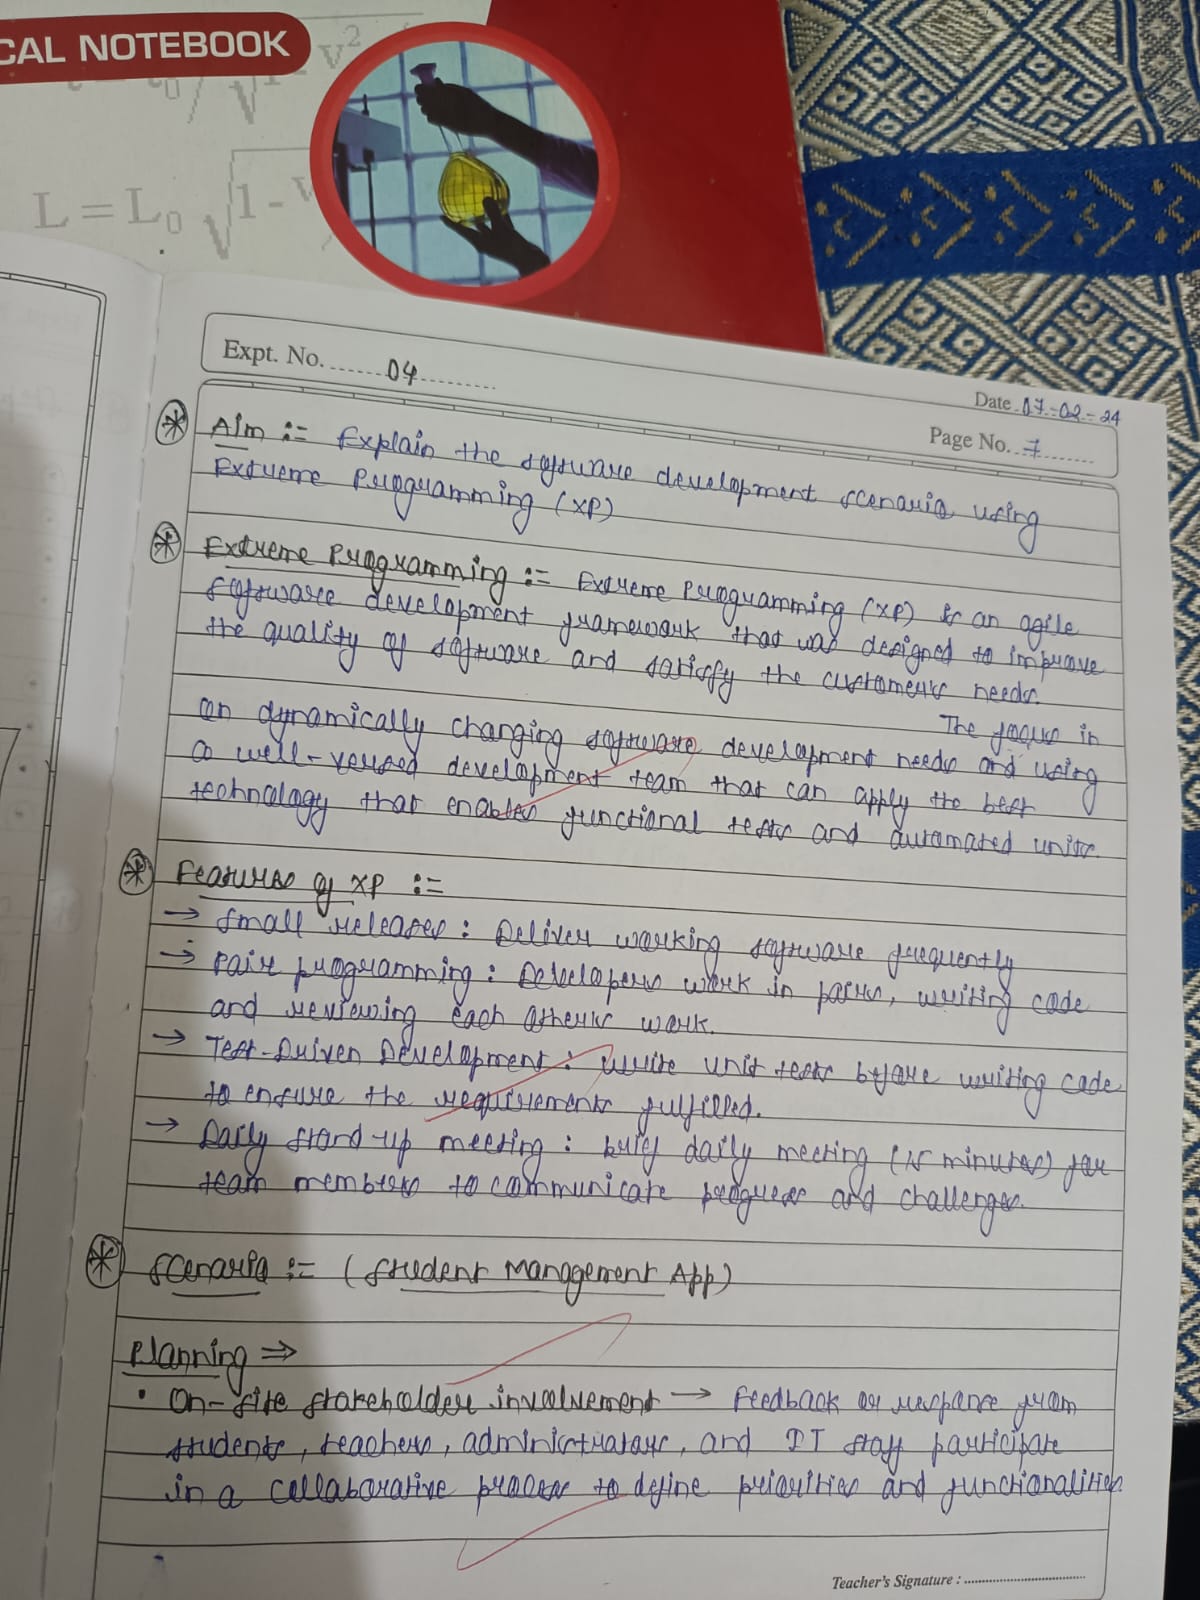 CAL NOTEBOOK
L = L0 √1 - v
Expt. No. 04
Date 07-02-24
Page No. 7
* Aim :- Explain the software development scenario using
Extreme Programming (XP)
* Extreme Programming :- Extreme Programming (XP) is an agile
software development framework that was designed to improve
the quality of software and satisfy the customers needs.
The focus in
on dynamically changing software development needs and using
a well-versed development team that can apply the best
technology that enables functional tests and automated units.
* Features of XP :-
→ Small releases : Deliver working software frequently
→ Pair programming : Developers work in pairs, writing code
and reviewing each others work.
→ Test-Driven Development : Write unit tests before writing code
to ensure the requirements fulfilled.
→ Daily stand-up meeting : brief daily meeting (15 minutes) for
team members to communicate progress and challenges.
* Scenario :- (Student Management App)
Planning ⇒
• On-site stakeholder involvement → Feedback or response from
students, teachers, administrators, and IT staff participate
in a collaborative process to define priorities and functionalities.
Teacher's Signature :